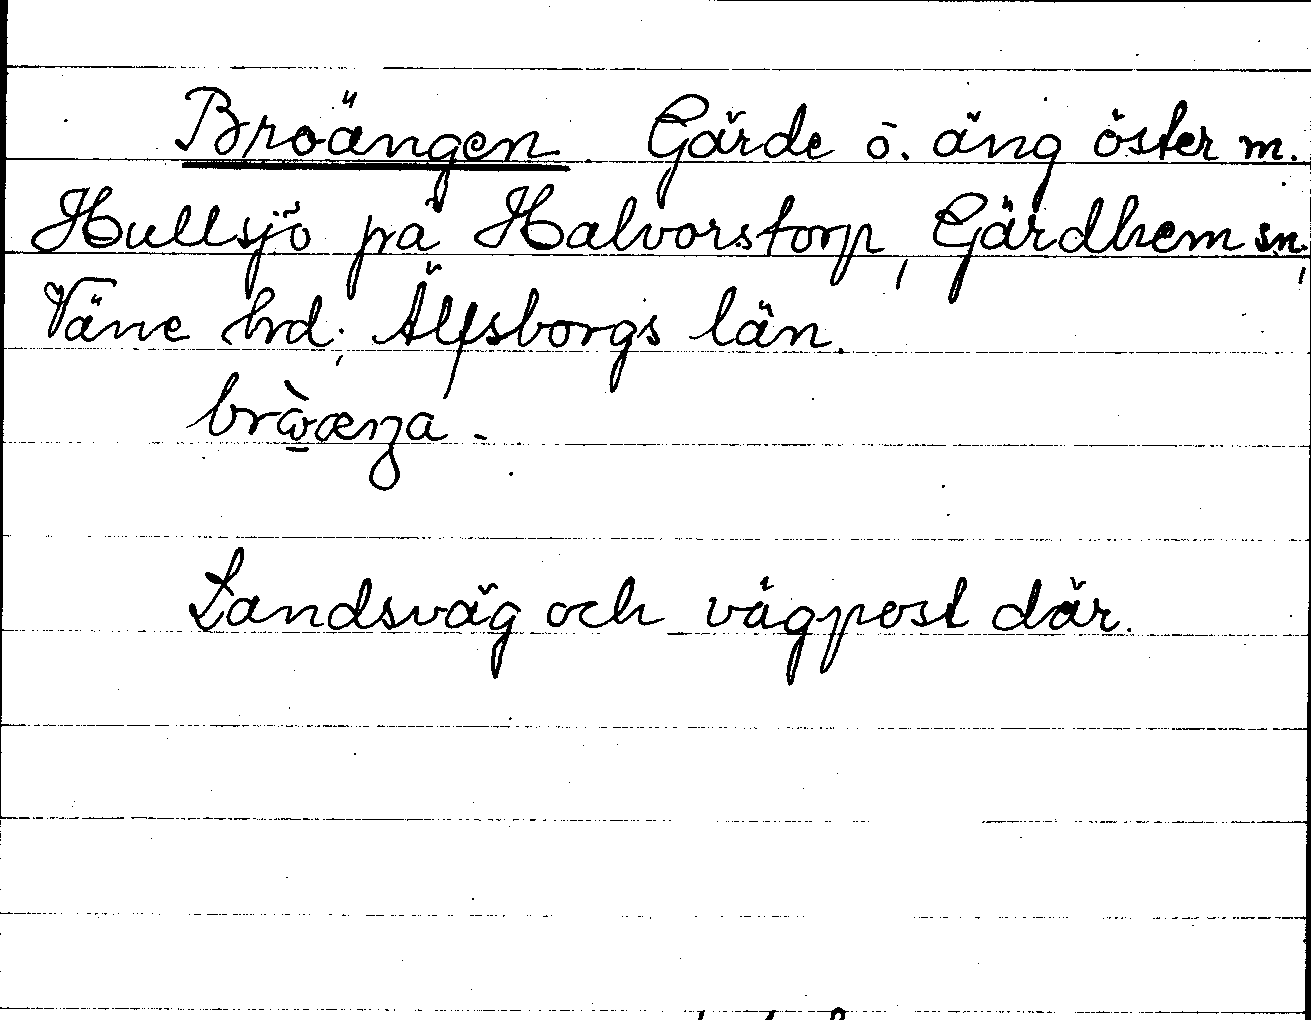 Broängen. Gärde o. äng öster m.
Hullsjö på Halvorstorp, Gärdhem sn,
Väne hrd, Älfsborgs län.
Landsväg och vägpost där.